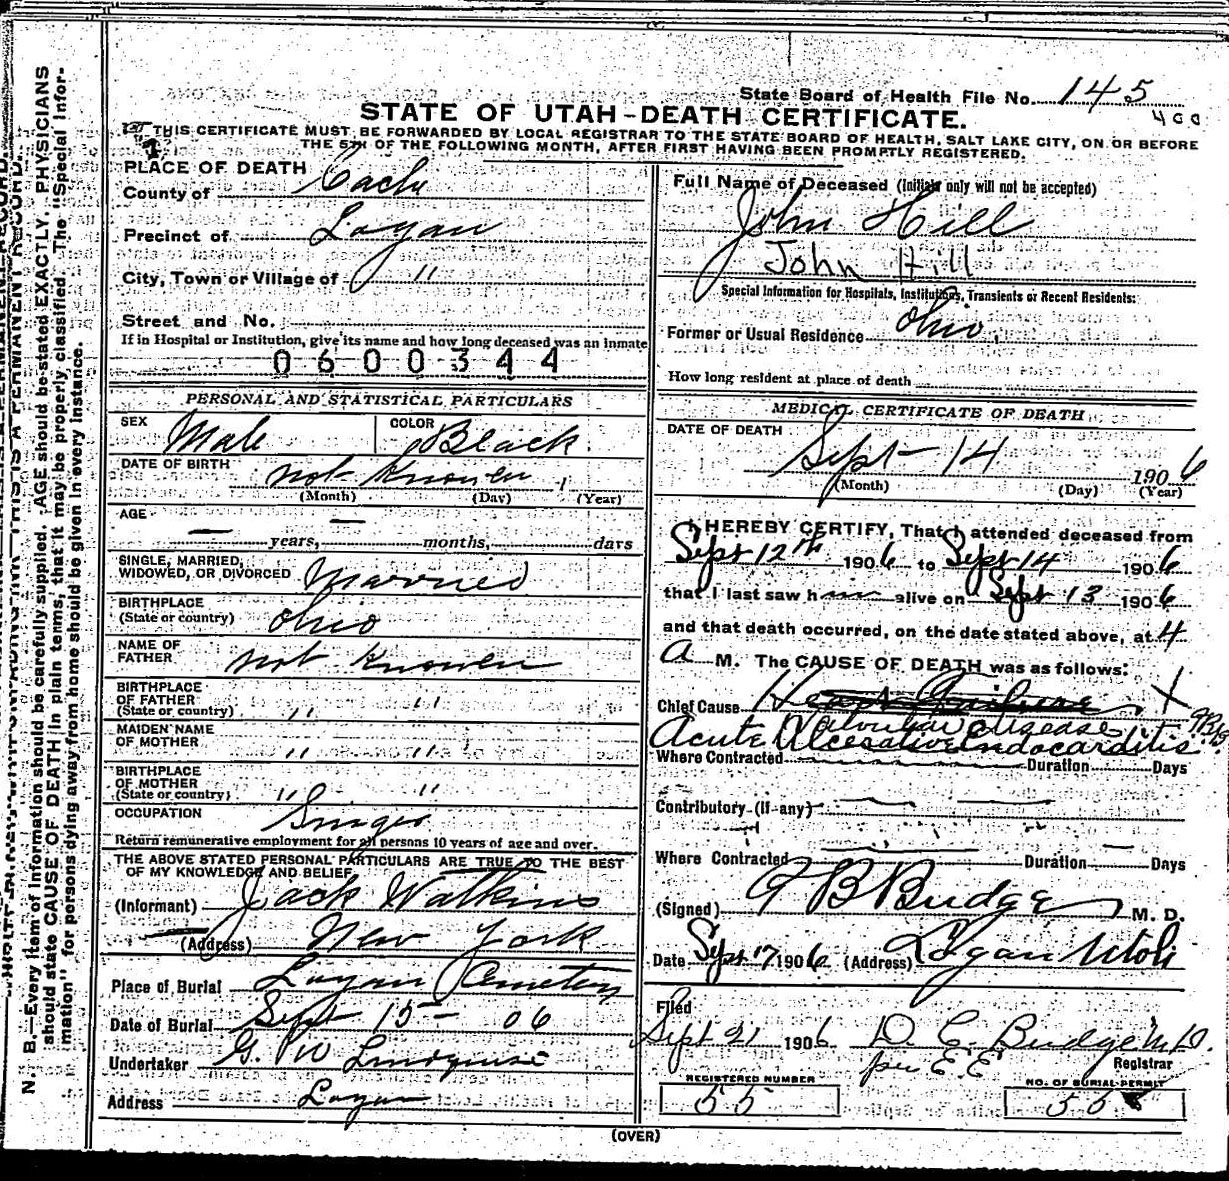 State Board of Health File No. 145
400
STATE OF UTAH-DEATH CERTIFICATE.
THIS CERTIFICATE MUST BE FORWARDED BY LOCAL REGISTRAR TO THE STATE BOARD OF HEALTH, SALT LAKE CITY, ON OR BEFORE
THE 5TH OF THE FOLLOWING MONTH, AFTER FIRST HAVING BEEN PROMPTLY REGISTERED.
PLACE OF DEATH
County of Cache
Precinct of Logan
City, Town or Village of "
Street and No.
If in Hospital or Institution, give its name and how long deceased was an inmate
0600344
PERSONAL AND STATISTICAL PARTICULARS
SEX Male COLOR Black
DATE OF BIRTH not Knowen
(Month) (Day) (Year)
AGE
— years, — months, days
SINGLE, MARRIED,
WIDOWED, OR DIVORCED Married
BIRTHPLACE
(State or country) Ohio
NAME OF
FATHER not Knowen
BIRTHPLACE
OF FATHER
(State or country) " "
MAIDEN NAME
OF MOTHER " "
BIRTHPLACE
OF MOTHER
(State or country) " "
OCCUPATION Singer
Return remunerative employment for all persons 10 years of age and over.
THE ABOVE STATED PERSONAL PARTICULARS ARE TRUE TO THE BEST
OF MY KNOWLEDGE AND BELIEF
(Informant) Jack Watkins
(Address) New York
Place of Burial Logan Cemetery
Date of Burial Sept 15 - 06
Undertaker G. W Lindquist
Address Logan
Full Name of Deceased (Initials only will not be accepted)
John Hill
John Hill
Special Information for Hospitals, Institutions, Transients or Recent Residents:
Former or Usual Residence Ohio
How long resident at place of death
MEDICAL CERTIFICATE OF DEATH
DATE OF DEATH
Sept - 14 1906
(Month) (Day) (Year)
I HEREBY CERTIFY, That I attended deceased from
Sept 12th 1906 to Sept 14 1906
that I last saw him alive on Sept 13 1906
and that death occurred, on the date stated above, at 4
a M. The CAUSE OF DEATH was as follows:
Chief Cause Heart Failure X
Valvular disease
Acute Ulcerative Endocarditis
Where Contracted Duration Days
Contributory (if any)
Where Contracted Duration Days
(Signed) T B Budge M. D.
Date Sept 17 1906 (Address) Logan Utah
Filed
Sept 21 1906 D. C. Budge M.D.
Registrar
per E.E
REGISTERED NUMBER
55
NO. OF BURIAL PERMIT
55
(OVER)
N. B.—Every item of information should be carefully supplied. AGE should be stated EXACTLY. PHYSICIANS
should state CAUSE OF DEATH in plain terms, that it may be properly classified. The "Special Infor-
mation" for persons dying away from home should be given in every instance.